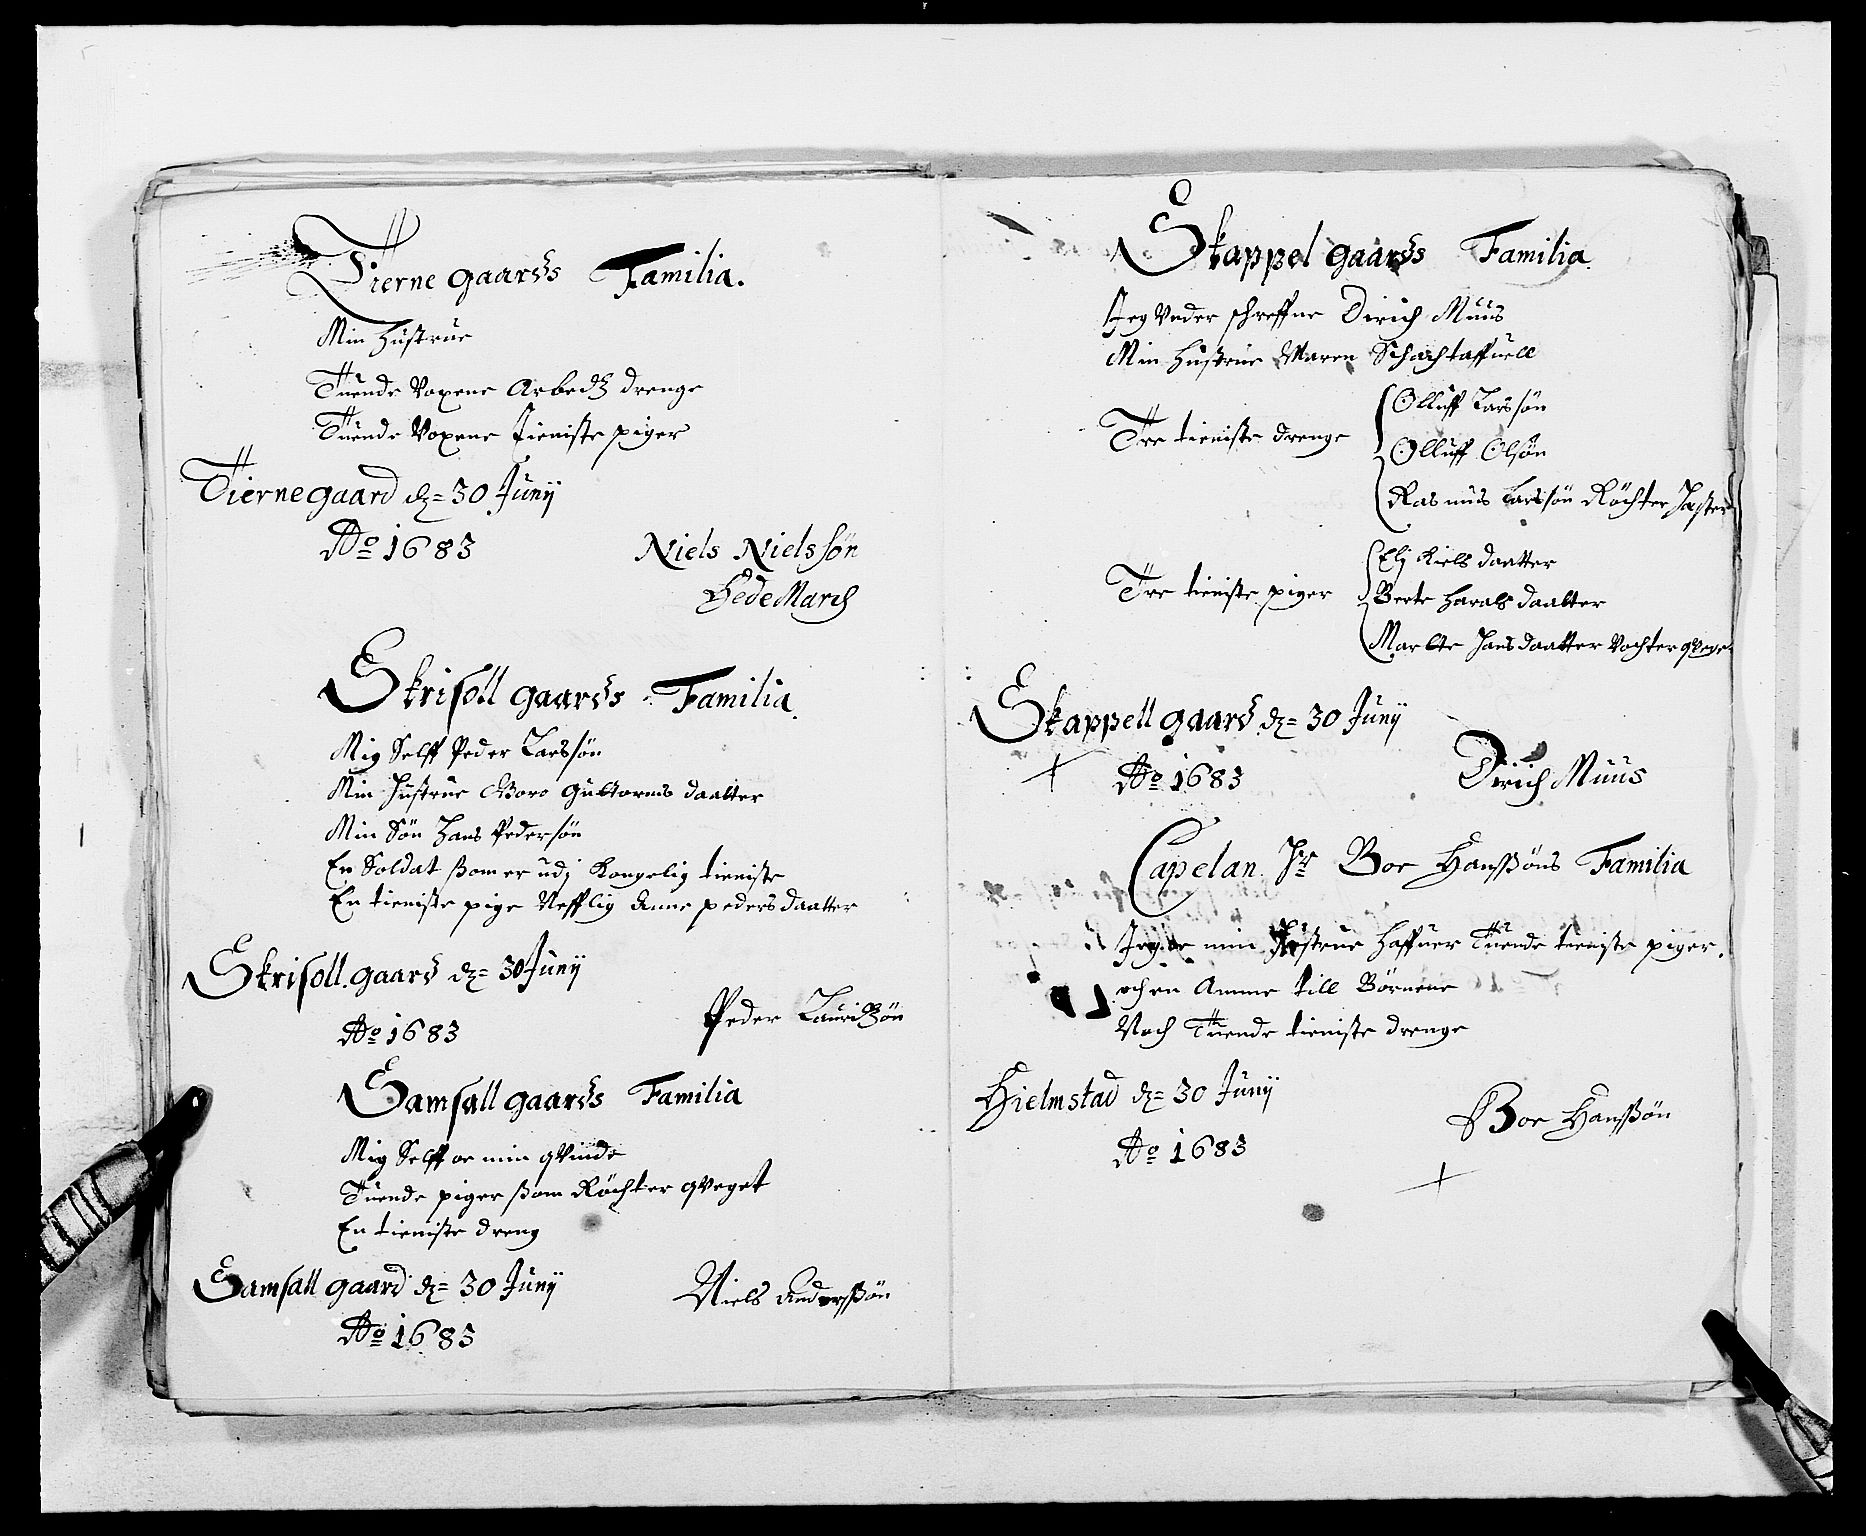 Tierne gaards Familia.
Min Hustrue
Tuende Voxene Arbedtz drenge
Tuende Voxene Tieniste piger
Tierne gaard dz= 30 Junij
Ao 1683
Niels Nielssøn
HedeMarch
Skrisoll gaards Familia.
Mig Selff Peder Larssøn
Min Hustrue Boro Guttorms daatter
Min Søn Hans Pedersøn
En Soldat ßom er udj Kongelig tieniste
En tieniste pige Nefflig Anne peders daatter
Skrisoll gaard dz= 30 Junij
Ao 1683
Peder Lauridtzøn
Samsall gaards Familia
Mig Selff oc min qvinde
Tuende piger ßom Røchter qveget
En tieniste dreng
Samsall gaard dz= 30 Junij
Ao 1683
Niels Andersßøn
Skappel gaards Familia.
Jeg Under schreffne Dirich Muus
Min Hustrue Maren Schachtaffuell
Tre tieniste drenge
Olluff Larssøn
Olluff Olsøn
Rasmus Larssøn Røchter Hester
Tre tieniste piger
Elj Niels daatter
Berte Harals daatter
Marte Hans daatter Vochter qveget
Skappell gaard dz= 30 Junij
Ao 1683
Dirich Muus
Capelan Hr Boe Hansßøns Familia
Jeg oc min Hustrue haffuer Tuende tieniste piger.
och en Amme till Børnene
Noch Tuende tieniste drenge
Hielmstad dz= 30 Junij
Ao 1683
Boe Hansßøn